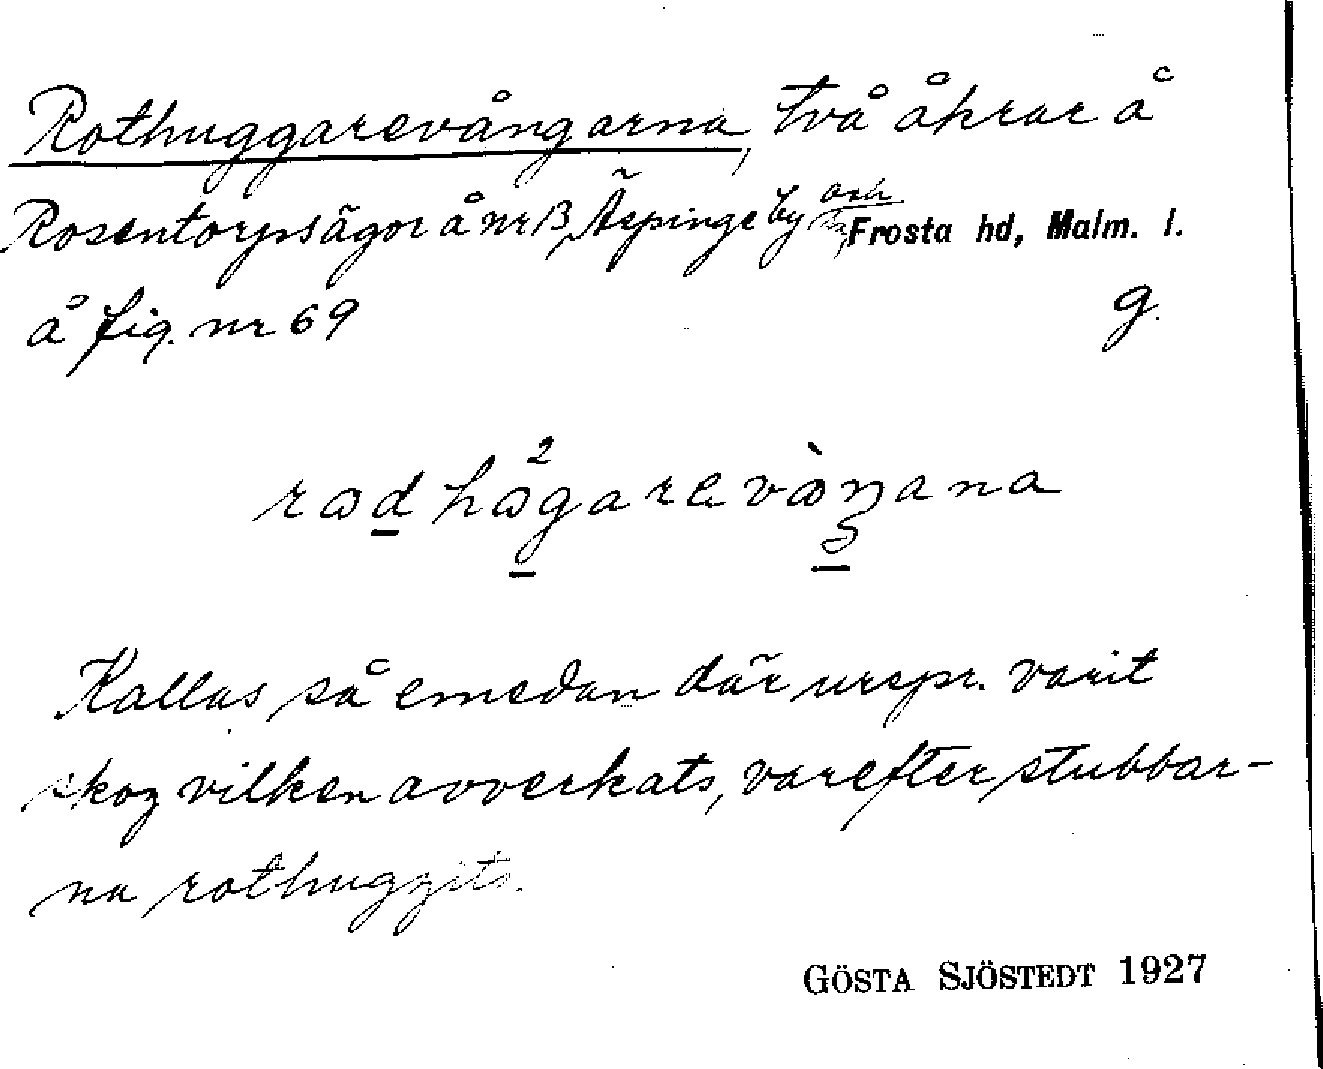 Rothuggarevångarna, två åkrar å
Rosentorpsägor å nr 13, Äspinge by och sn, Frosta hd, Malm. l.
å fig. nr 69 g.
Kallas så emedan där urspr. varit
skog vilken avverkats, varefter stubbar-
na rothuggits.
GÖSTA SJÖSTEDT 1927